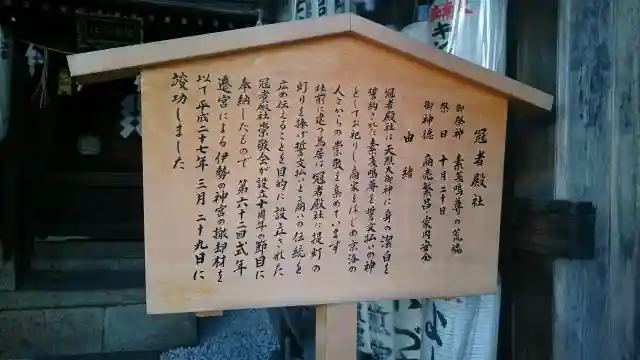 冠者殿社
御祭神 素戔嗚尊の荒魂
祭日 十月二十日
御神徳 商売繁昌・家内安全
由緒
冠者殿社は天照大御神に身の潔白を
誓約された素戔嗚尊を誓文払いの神
としてお祀りし商家をはじめ京洛の
人々からの崇敬を集めています
社前に建つ鳥居は冠者殿社に提灯の
灯りを捧げ誓文払いと商いの伝統を
広め伝えることを目的に設立された
冠者殿社崇敬会が設立十周年の節目に
奉納したもので 第六十二回式年
遷宮による伊勢の神宮の撤却材を
以て平成二十七年三月二十九日に
竣功しました